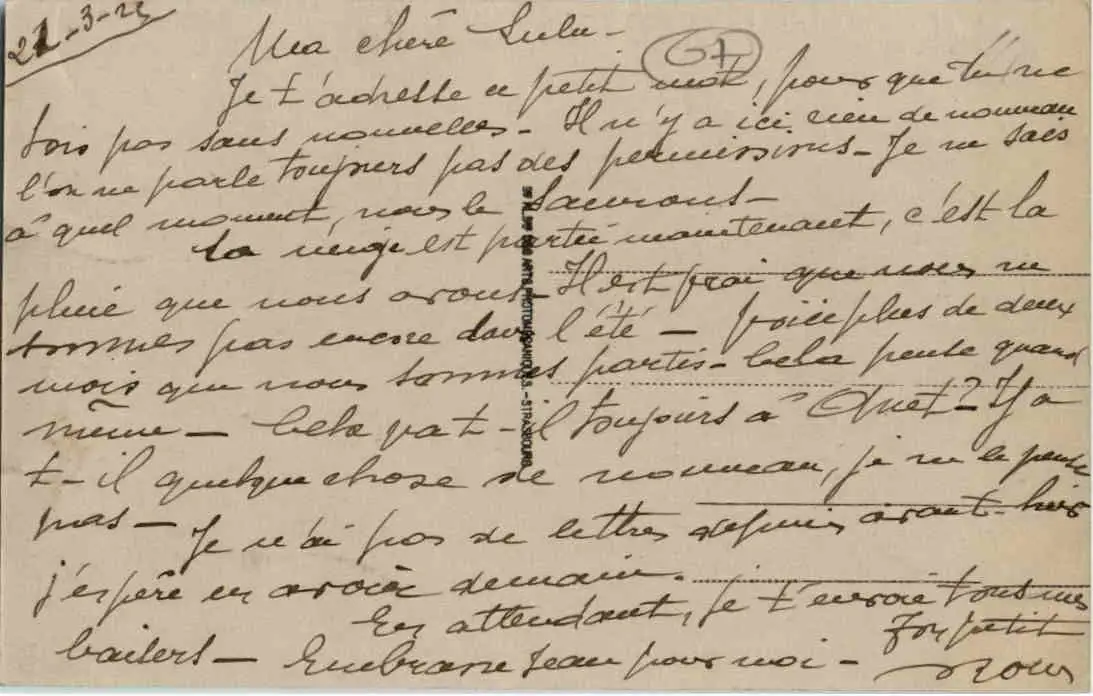 22-3-25
Ma chère Lulu -
Je t'adresse ce petit mot, pour que tu ne
sois pas sans nouvelles - Il n'y a ici rien de nouveau
l'on ne parle toujours pas des permissions - Je ne sais
à quel moment, nous le saurons -
La neige est partie maintenant, c'est la
pluie que nous avons - Il est vrai que nous ne
sommes pas encore dans l'été - voici plus de deux
mois que nous sommes partis - Cela passe quand
même - Cela va t-il toujours à Anet? Y a
t-il quelque chose de nouveau, je ne le pense
pas - Je n'ai pas de lettres depuis avant-hier
j'espère en avoir demain.
En attendant, je t'envoie tous mes
baisers - Embrasse Jean pour moi -
Ton petit
67
DES ARTS PHOTOMÉCANIQUES. - STRASBOURG